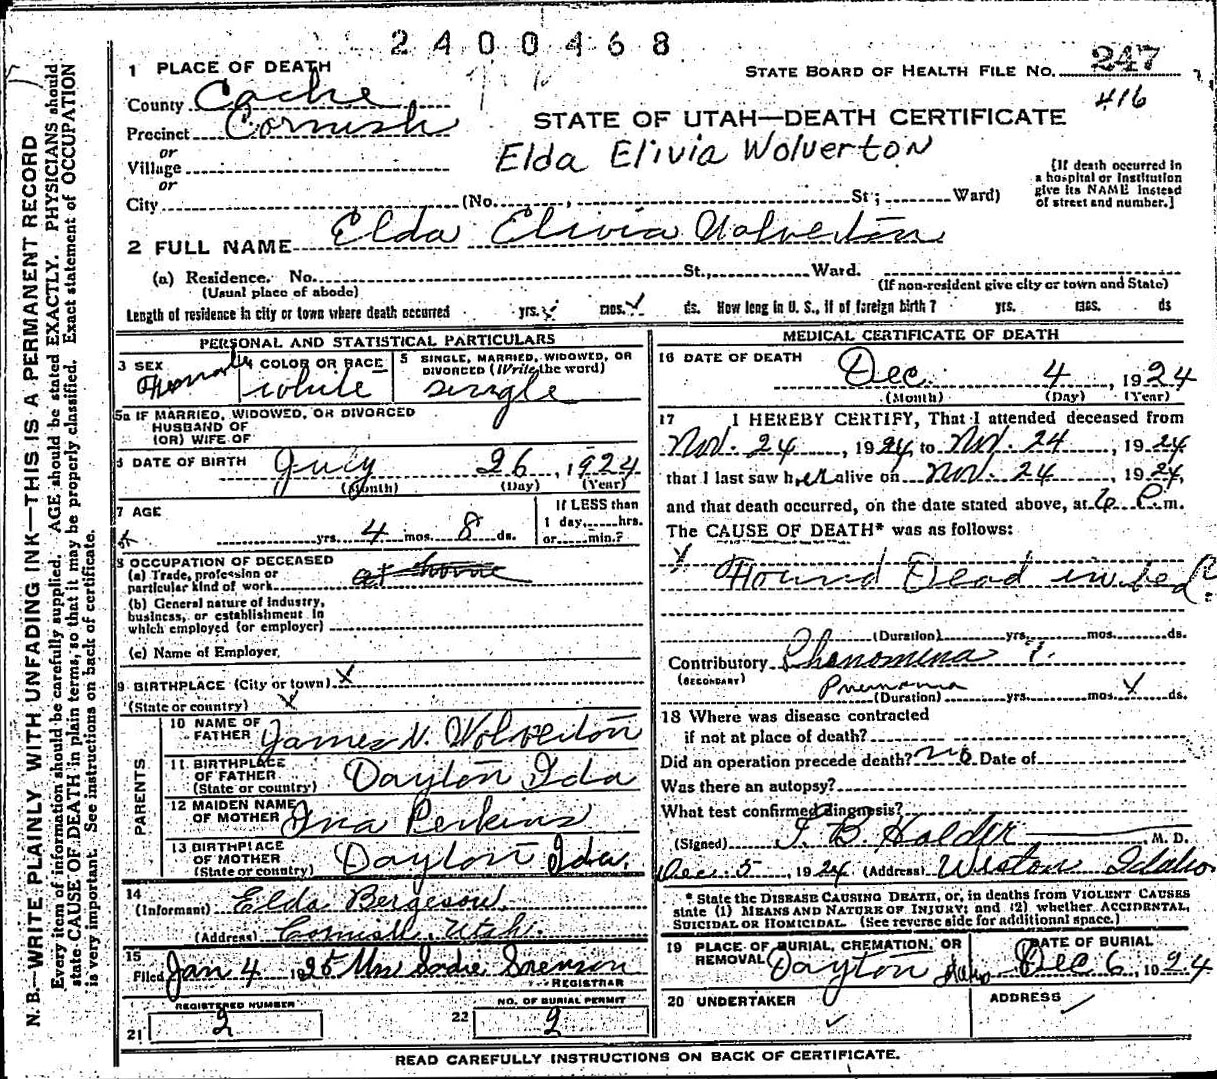 2400468
1 PLACE OF DEATH
STATE BOARD OF HEALTH FILE NO. 247
416
County Cache
Precinct Cornish
or
Village
or
City (No. , St; Ward)
STATE OF UTAH—DEATH CERTIFICATE
Elda Elivia Wolverton
[If death occurred in
a hospital or institution
give its NAME instead
of street and number.]
2 FULL NAME Elda Elivia Wolverton
(a) Residence. No. St., Ward.
(Usual place of abode) (If non-resident give city or town and State)
Length of residence in city or town where death occurred yrs. mos. ds. How long in U. S., if of foreign birth? yrs. mos. ds
PERSONAL AND STATISTICAL PARTICULARS
3 SEX
Female
4 COLOR OR RACE
white
5 SINGLE, MARRIED, WIDOWED, OR
DIVORCED (Write the word)
single
5a IF MARRIED, WIDOWED, OR DIVORCED
HUSBAND OF
(OR) WIFE OF
6 DATE OF BIRTH July 26, 1924
(Month) (Day) (Year)
7 AGE
yrs. 4 mos. 8 ds.
If LESS than
1 day, hrs.
or min.?
8 OCCUPATION OF DECEASED
(a) Trade, profession or
particular kind of work at home
(b) General nature of industry,
business, or establishment in
which employed (or employer)
(c) Name of Employer
9 BIRTHPLACE (City or town) X
(State or country) X
PARENTS
10 NAME OF
FATHER James N. Wolverton
11 BIRTHPLACE
OF FATHER
(State or country) Dayton Ida
12 MAIDEN NAME
OF MOTHER Ina Perkins
13 BIRTHPLACE
OF MOTHER
(State or country) Dayton Ida.
14
(Informant) Elda Bergeson
(Address) Cornish, Utah.
15
Filed Jan 4 1925 Mrs Sadie Sorenson
REGISTRAR
REGISTERED NUMBER
21 2
NO. OF BURIAL PERMIT
22 2
MEDICAL CERTIFICATE OF DEATH
16 DATE OF DEATH
Dec. 4, 1924
(Month) (Day) (Year)
17 I HEREBY CERTIFY, That I attended deceased from
Nov. 24, 1924 to Nov. 24, 1924
that I last saw her alive on Nov. 24, 1924,
and that death occurred, on the date stated above, at 6 P. m.
The CAUSE OF DEATH* was as follows:
Found Dead in bed
(Duration) yrs. mos. ds.
Contributory Phenomena ?
(SECONDARY)
Pneumonia
(Duration) yrs. mos. ds.
18 Where was disease contracted
if not at place of death?
Did an operation precede death? no Date of
Was there an autopsy?
What test confirmed diagnosis?
(Signed) J. B. Halder M. D.
Dec. 5, 1924 (Address) Weston Idaho
* State the DISEASE CAUSING DEATH, or, in deaths from VIOLENT CAUSES
state (1) MEANS AND NATURE OF INJURY; and (2) whether ACCIDENTAL,
SUICIDAL OR HOMICIDAL. (See reverse side for additional space.)
19 PLACE OF BURIAL, CREMATION, OR
REMOVAL Dayton Idaho
DATE OF BURIAL
Dec 6, 1924
20 UNDERTAKER
ADDRESS
READ CAREFULLY INSTRUCTIONS ON BACK OF CERTIFICATE.
N. B.—WRITE PLAINLY WITH UNFADING INK—THIS IS A PERMANENT RECORD
Every item of information should be carefully supplied. AGE should be stated EXACTLY. PHYSICIANS should
state CAUSE OF DEATH in plain terms, so that it may be properly classified. Exact statement of OCCUPATION
is very important. See instructions on back of certificate.